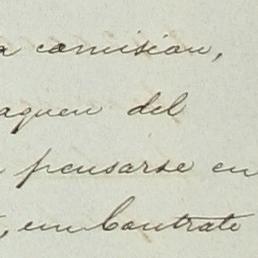 a comision,
aguen del
pensarse en
, em Contrate